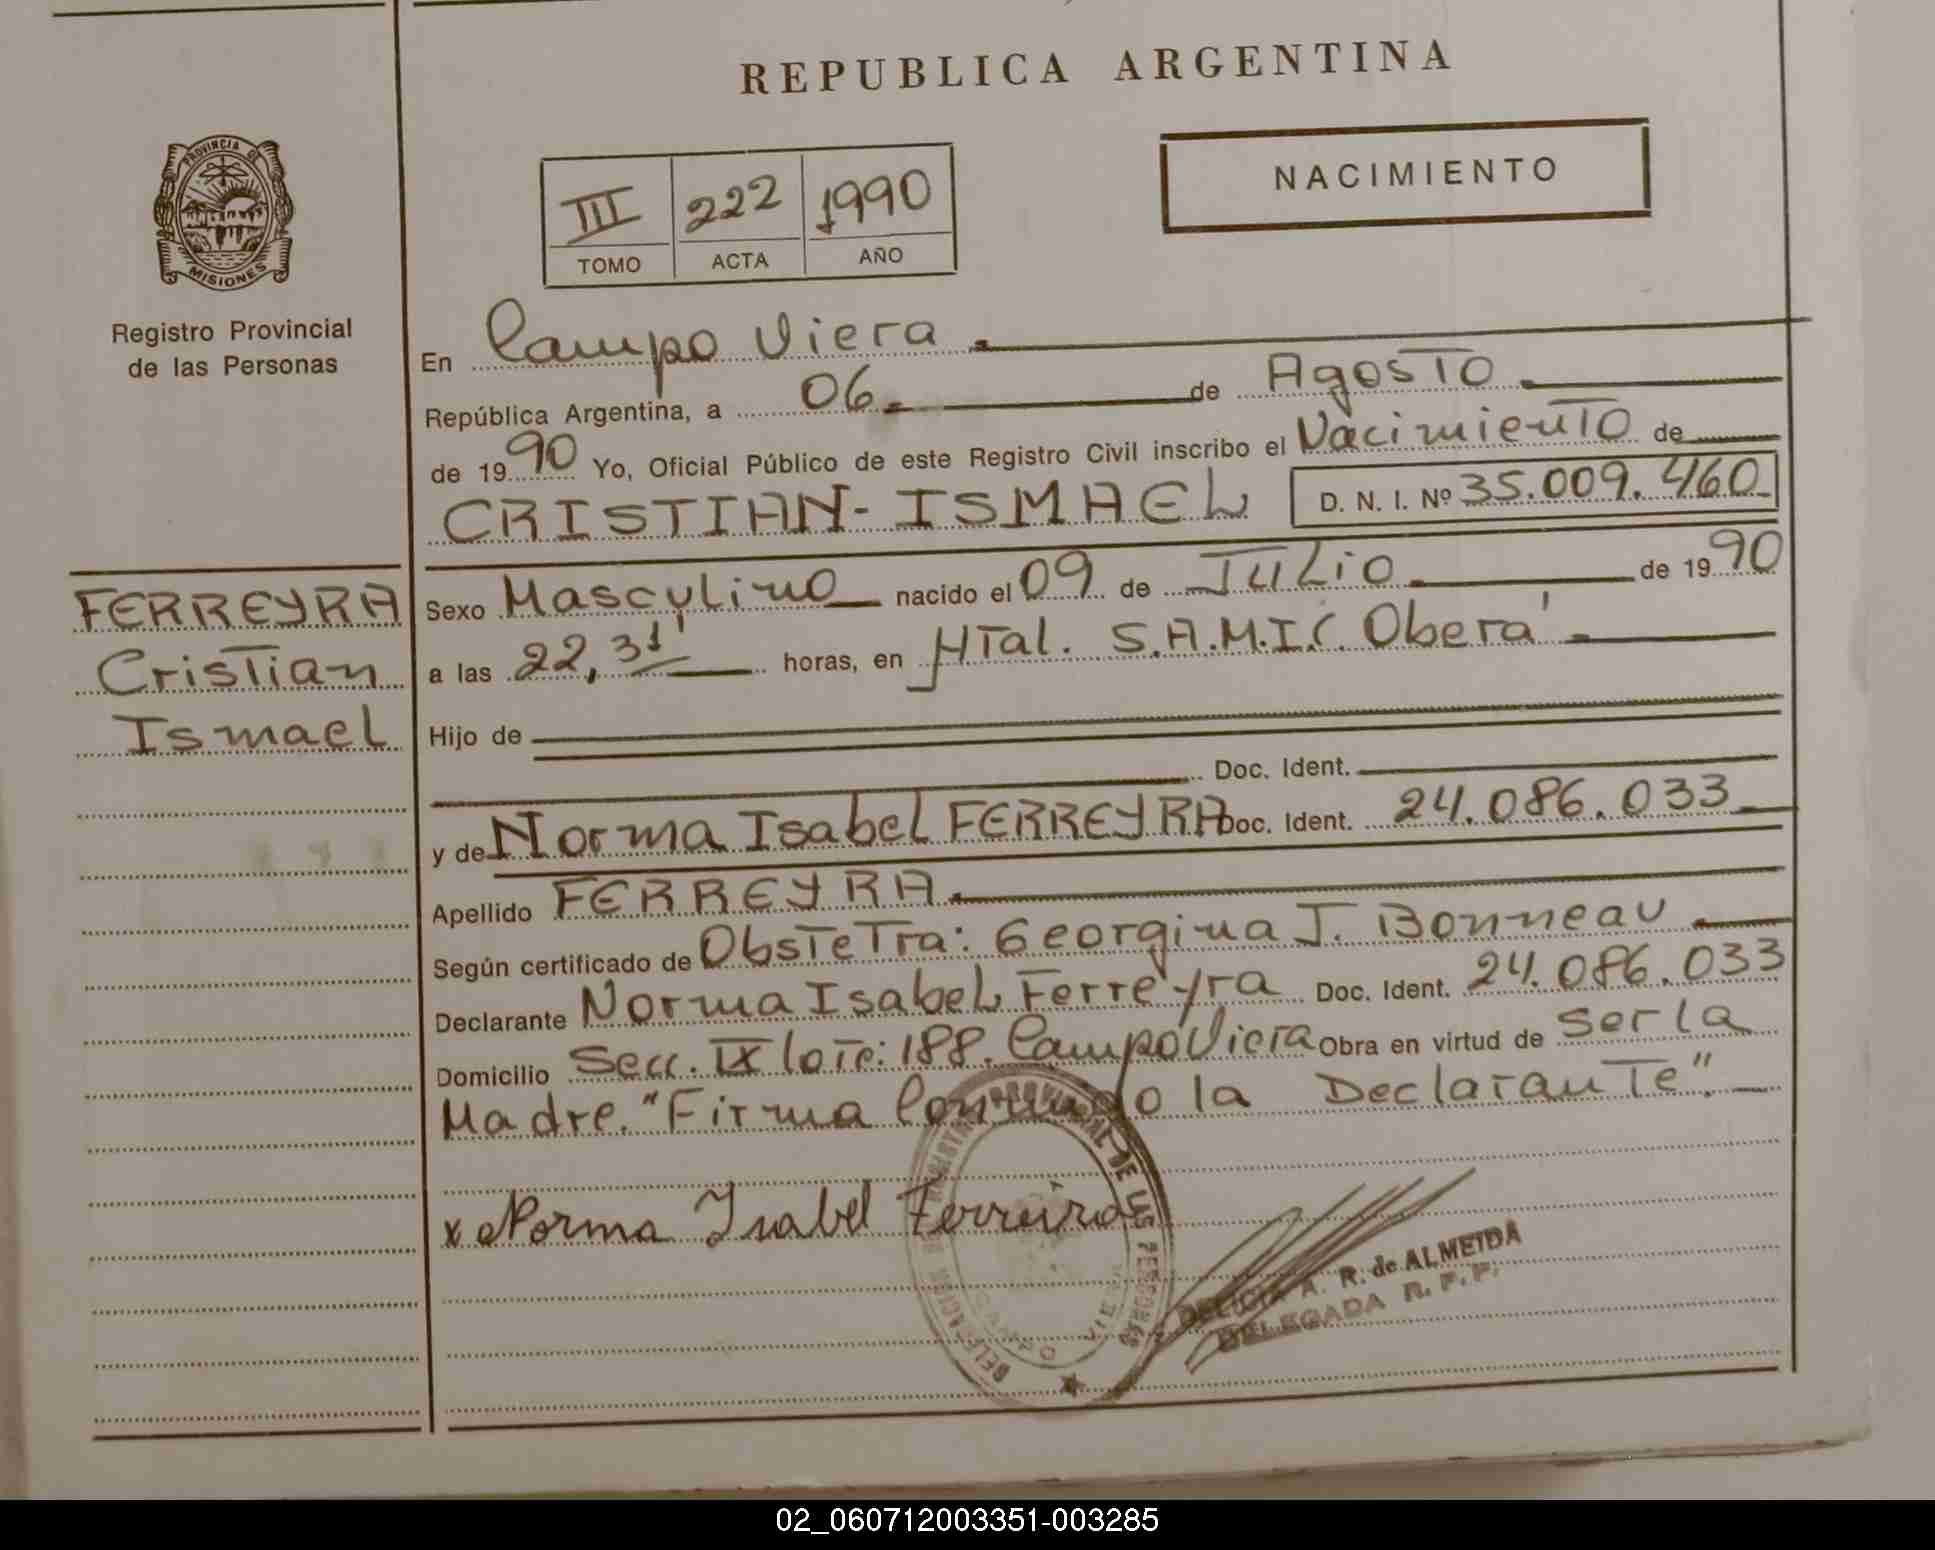 REPUBLICA ARGENTINA
PROVINCIA DE
MISIONES
III 222 1990
TOMO ACTA AÑO
NACIMIENTO
Registro Provincial
de las Personas
FERREYRA
Cristian
Ismael
En Campo Viera
República Argentina, a 06 de Agosto
de 1990 Yo, Oficial Público de este Registro Civil inscribo el Nacimiento de
CRISTIAN-ISMAEL D. N. I. Nº 35.009.460
Sexo Masculino nacido el 09 de Julio de 1990
a las 22,31' horas, en Htal. S.A.M.I.C. Oberá
Hijo de
Doc. Ident.
y de Norma Isabel FERREYRA Doc. Ident. 24.086.033
Apellido FERREYRA
Según certificado de Obstetra: Georgina J. Bonneau
Declarante Norma Isabel Ferreyra Doc. Ident. 24.086.033
Domicilio Secc. IX lote: 188. Campo Viera Obra en virtud de ser la
Madre. "Firma Conmigo la Declarante".
x Norma Isabel Ferreira
DELEGACION REGISTRO DE LAS PERSONAS
CAMPO VIERA
DELICIA A. R. de ALMEIDA
DELEGADA R. P. P.
02_060712003351-003285